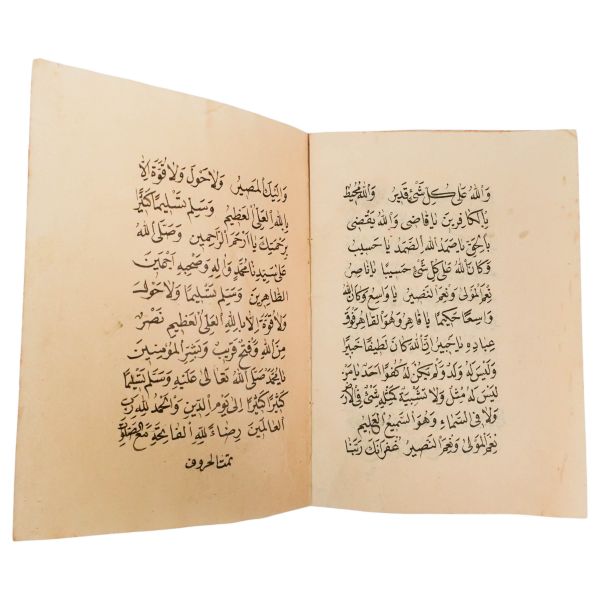 وَاللهُ عَلَى كُلِّ شَيْءٍ قَدِيرٌ وَاللهُ مُحِيطٌ
بِالْكَافِرِينَ يَا قَاضِى وَاللهُ يَقْضِى
بِالْحَقِّ يَا صَمَدُ اللهُ الصَّمَدُ يَا حَسِيبُ
وَكَانَ اللهُ عَلَى كُلِّ شَيْءٍ حَسِيبًا يَا نَاصِرُ
نِعْمَ الْمَوْلَى وَنِعْمَ النَّصِيرُ يَا وَاسِعُ وَكَانَ اللهُ
وَاسِعًا حَكِيمًا يَا قَاهِرُ وَهُوَ الْقَاهِرُ فَوْقَ
عِبَادِهِ يَا خَبِيرُ إِنَّ اللهَ كَانَ لَطِيفًا خَبِيرًا
وَلَيْسَ لَهُ وَلَدٌ وَلَمْ يَكُنْ لَهُ كُفُوًا أَحَدٌ يَا مَنْ
لَيْسَ لَهُ مِثْلٌ وَلَا شَبِيهٌ كَمِثْلِهِ شَيْءٌ فِى الْأَرْضِ
وَلَا فِى السَّمَاءِ وَهُوَ السَّمِيعُ الْعَلِيمُ
نِعْمَ الْمَوْلَى وَنِعْمَ النَّصِيرُ غُفْرَانَكَ رَبَّنَا
وَإِلَيْكَ الْمَصِيرُ وَلَا حَوْلَ وَلَا قُوَّةَ إِلَّا
بِاللهِ الْعَلِىِّ الْعَظِيمِ وَسَلَّمَ تَسْلِيمًا كَثِيرًا
بِرَحْمَتِكَ يَا أَرْحَمَ الرَّاحِمِينَ وَصَلَّى اللهُ
عَلَى سَيِّدِنَا مُحَمَّدٍ وَآلِهِ وَصَحْبِهِ أَجْمَعِينَ
الطَّاهِرِينَ وَسَلَّمَ تَسْلِيمًا وَلَا حَوْلَ
وَلَا قُوَّةَ إِلَّا بِاللهِ الْعَلِىِّ الْعَظِيمِ نَصْرٌ
مِنَ اللهِ وَفَتْحٌ قَرِيبٌ وَبَشِّرِ الْمُؤْمِنِينَ
يَا مُحَمَّدُ صَلَّى اللهُ تَعَالَى عَلَيْهِ وَسَلَّمَ تَسْلِيمًا
كَثِيرًا كَثِيرًا إِلَى يَوْمِ الدِّينِ وَالْحَمْدُ لِلّهِ رَبِّ
الْعَالَمِينَ رِضَاءً لِلّهِ الْفَاتِحَةِ مَعَ صَلَوٰةِ
تمت الحروف